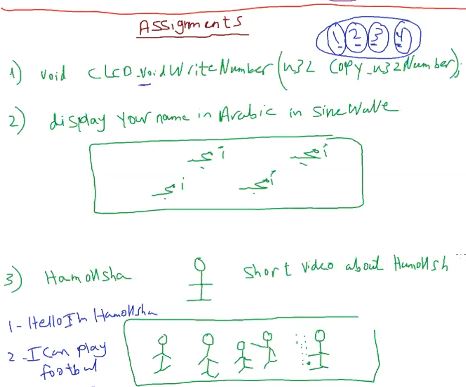 Assignments
1 2 3 4
1) void CLCD_voidWriteNumber(u32 Copy_u32Number);
2) display your name in Arabic in sine wave
3) Hamoksha short video about Hamoksh
1- Hello I'm Hamoksha
2- I can play
football